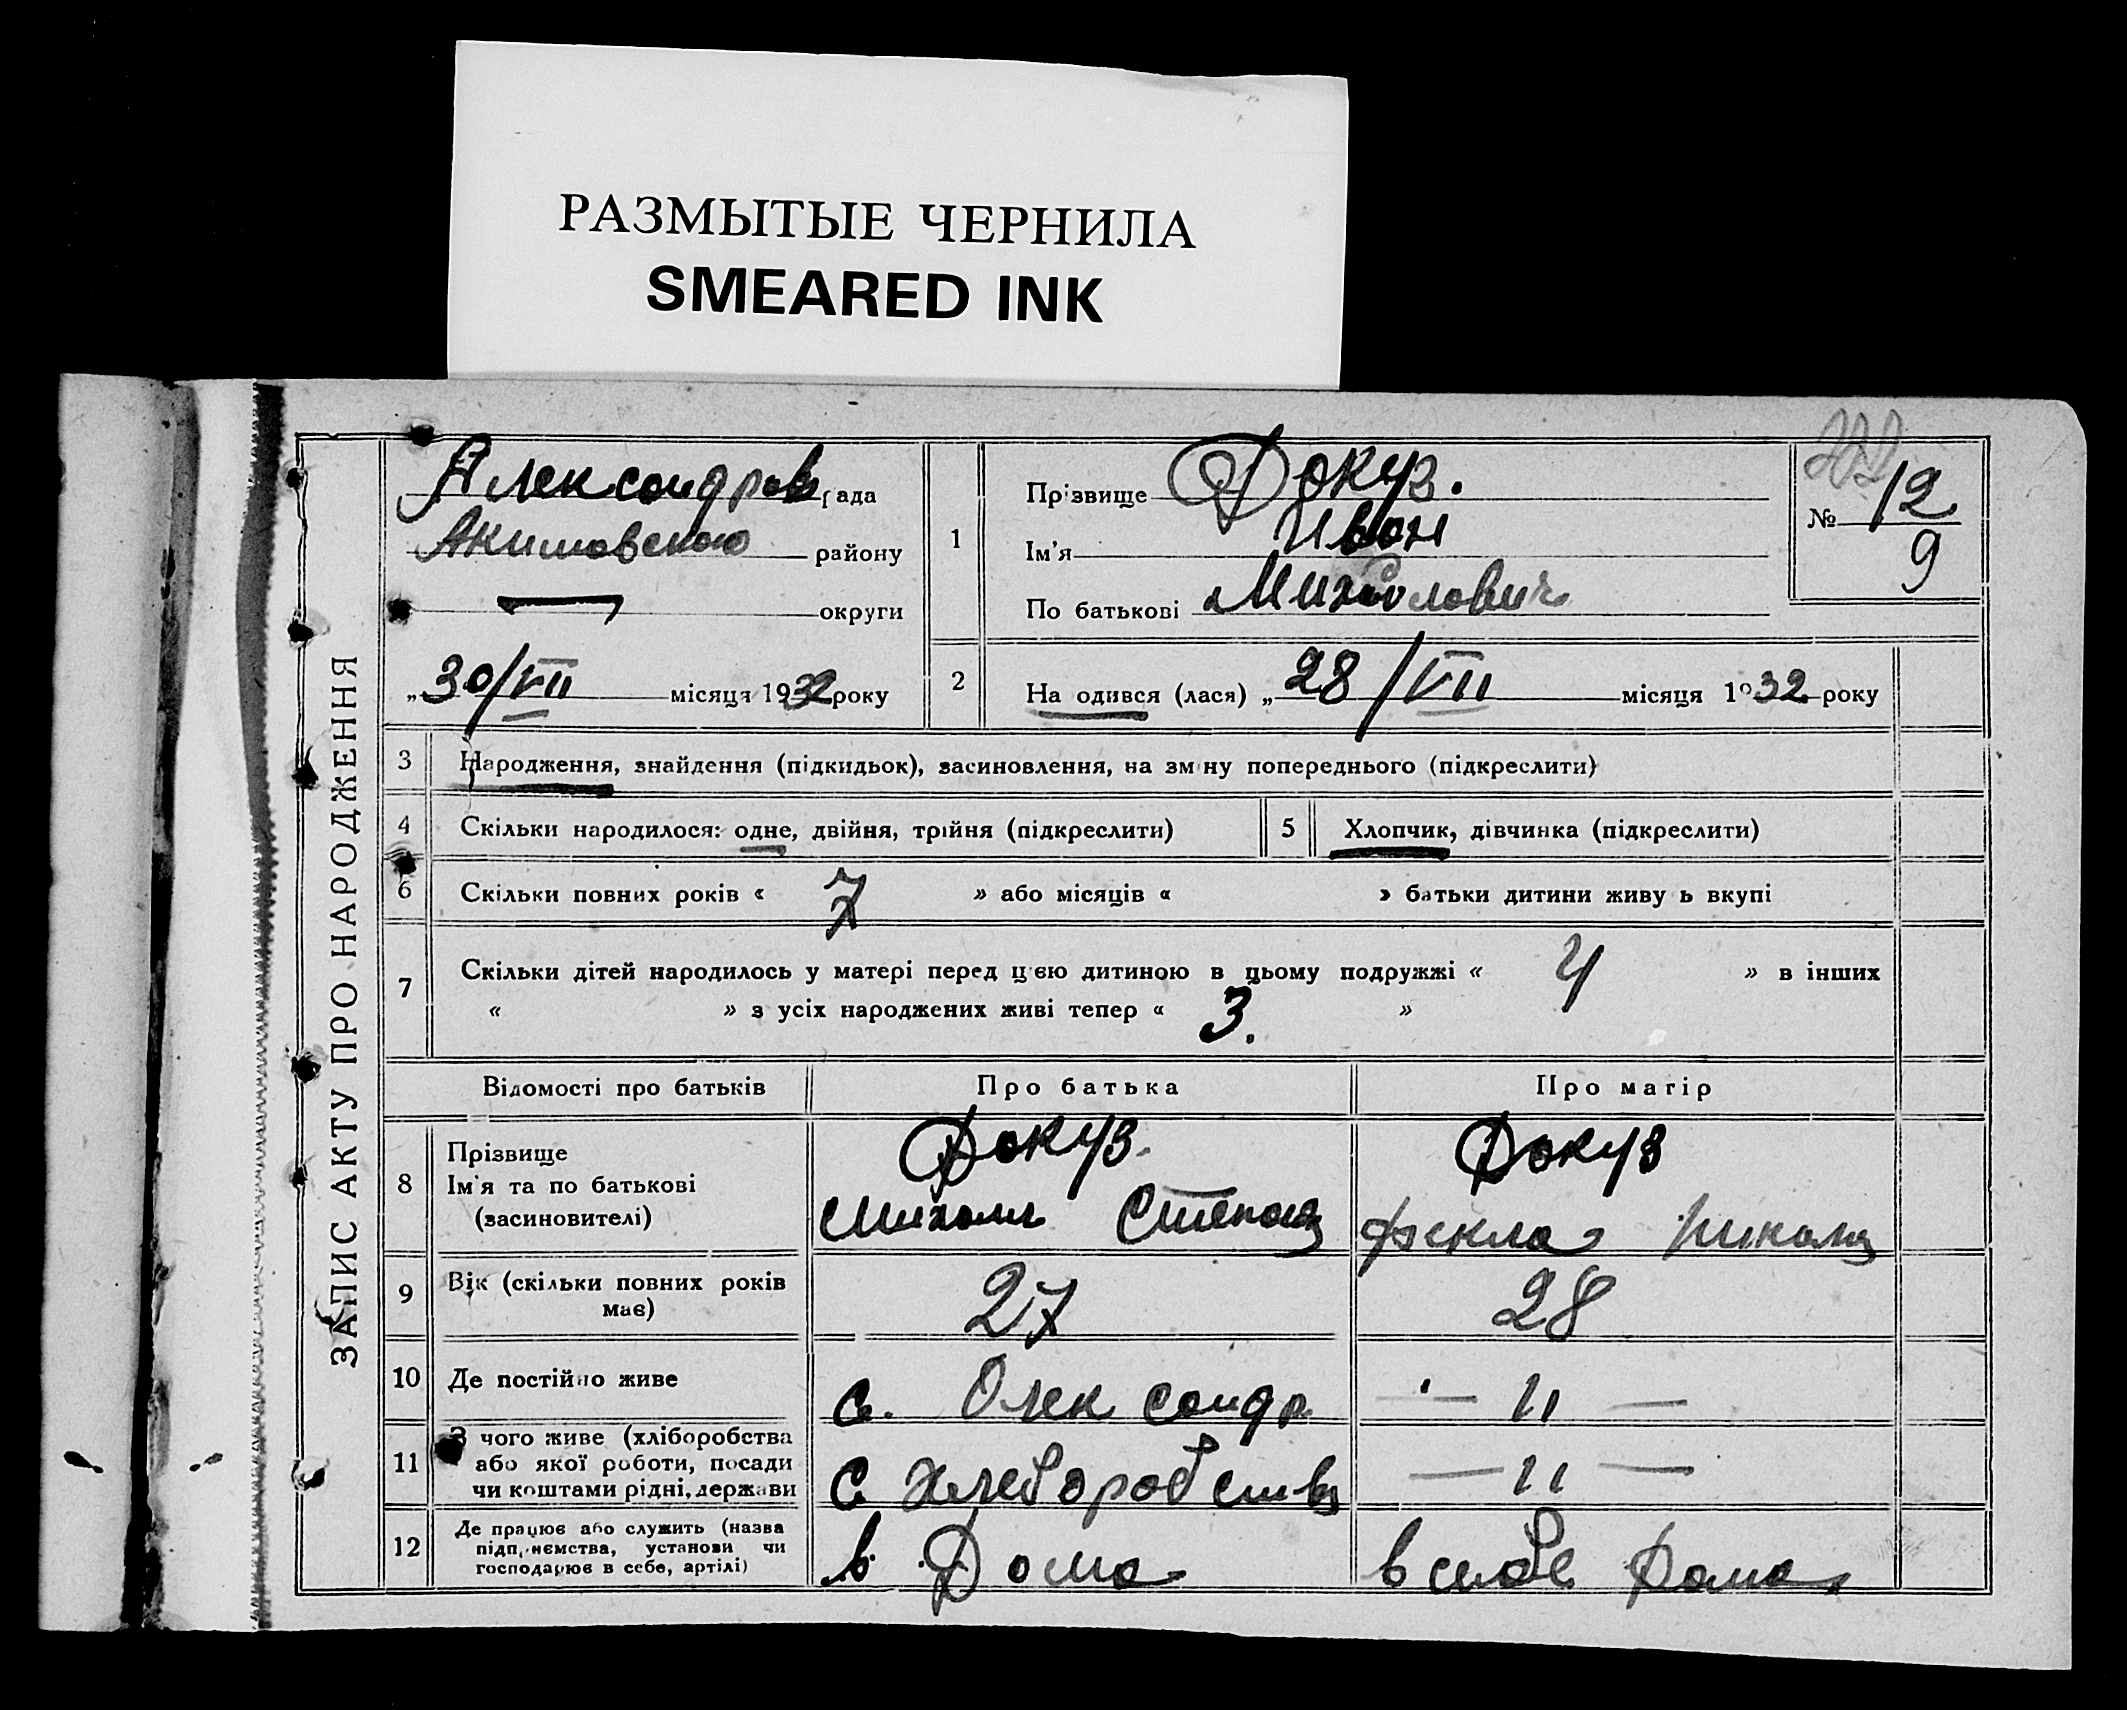 РАЗМЫТЫЕ ЧЕРНИЛА
SMEARED INK
ЗАПИС АКТУ ПРО НАРОДЖЕННЯ
Александров рада
Акимовского району
округи
„30/VII місяця 1932 року
1
Прізвище Докуз.
Ім'я Иван
По батькові Михайлович
№ 12
9
2 На одився (лася) „28/VII місяця 1932 року
3 Народження, знайдення (підкидьок), засиновлення, на зм ну попереднього (підкреслити)
4 Скільки народилося: одне, двійня, трійня (підкреслити) 5 Хлопчик, дівчинка (підкреслити)
6 Скільки повних років « 7 » або місяців « » батьки дитини живу ь вкупі
7 Скільки дітей народилось у матері перед цією дитиною в цьому подружжі « 4 » в інших
« » з усіх народжених живі тепер « 3. »
Відомості про батьків Про батька Про матір
8 Прізвище
Ім'я та по батькові
(засиновителі)
Докуз.
Михаил Степанов
Докуз
Фекла Никола
9 Вік (скільки повних років
має)
27 28
10 Де постійно живе с. Олександр — 11 —
11 З чого живе (хліборобства
або якої роботи, посади
чи коштами рідні, держави
С Хлеборобства — 11 —
12 Де працює або служить (назва
підп, иємства, установи чи
господарює в себе, артілі)
в Дома в себе Дома